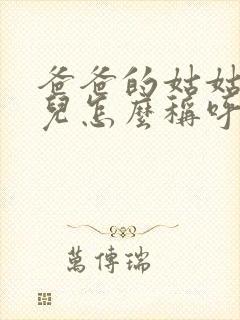 爸爸的姑姑
兒怎麼稱呼
萬傳瑞